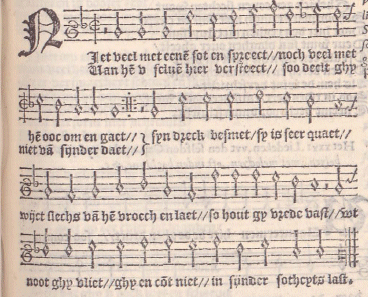 NIet veel met eenē sot en spreect//noch veel met
Uan hē v seluē hier verspeect// soo deelt ghy
hē ooc om en gaet// syn dreck besmet/sp is seer quaet//
niet vā synder daet//
wijct slechs vā hē vroech en laet//so hout gy vrede vast//wt
noot ghy vliet//ghy en cōt niet// in synder sotheyts last.